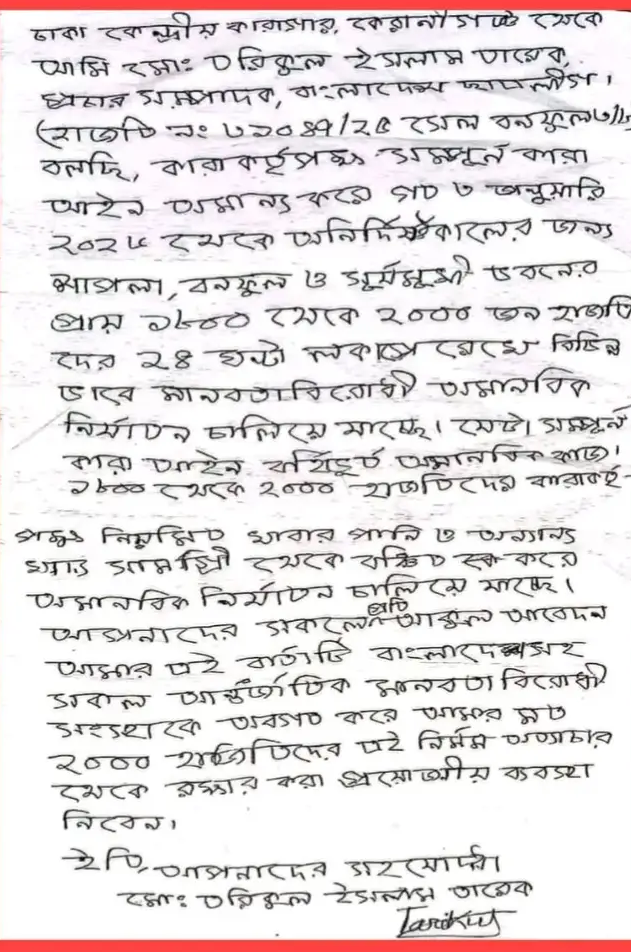 ঢাকা কেন্দ্রীয় কারাগার, কেরানীগঞ্জ থেকে
আমি মোঃ তরিকুল ইসলাম তারেক,
প্রচার সম্পাদক, বাংলাদেশ ছাত্রলীগ।
(হাজতি নং ৩১০৪৭/২৫ সেল বনফুল
বলছি, কারা কর্তৃপক্ষ সম্পূর্ন কারা
আইন অমান্য করে গত ৩ জানুয়ারি
২০২৬ থেকে অনির্দিষ্টকালের জন্য
শাপলা, বনফুল ও সূর্যমুখী ভবনের
প্রায় ১৮০০ থেকে ২০০০ জন হাজতি
দের ২৪ ঘন্টা লকাপে রেখে বিভিন্ন
ভাবে মানবতাবিরোধী অমানবিক
নির্যাতন চালিয়ে যাচ্ছে। যেটা সম্পূর্ন
কারা আইন বর্হিভূত অমানবিক কাজ।
১৮০০ থেকে ২০০০ হাজতিদের কারাকর্তৃ-
পক্ষ নিয়মিত খাবার পানি ও অন্যান্য
খাদ্য সামগ্রী থেকে বঞ্চিত করে
অমানবিক নির্যাতন চালিয়ে যাচ্ছে।
আপনাদের সকলের প্রতি আকুল আবেদন
আমার এই বার্তাটি বাংলাদেশসহ
সকল আর্ন্তজাতিক মানবতা বিরোধী
সংস্থাকে অবগত করে আমার মত
২০০০ হাজতিদের এই নির্মম অত্যাচার
থেকে রক্ষার করা প্রয়োজনীয় ব্যবস্থা
নিবেন।
ইতি, আপনাদের সহযোদ্ধা
মোঃ তরিকুল ইসলাম তারেক
Tarikul